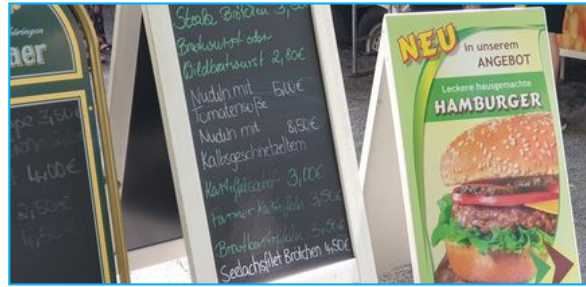 Thüringen
4,00€
2,50€
4,50
Steake Brötchen 3,50
Bratwurst oder
Wildbratwurst 2,80€
Nudeln mit 5,00€
Tomatensoße
Nudeln mit 8,50€
Kalbsgeschnetzeltem
Kartoffelsalat 3,00€
farmer Kartoffeln 3,50€
Bratkartoffeln 3,50€
Seelachsfilet Brötchen 4,50€
NEU in unserem
ANGEBOT
Leckere hausgemachte
HAMBURGER